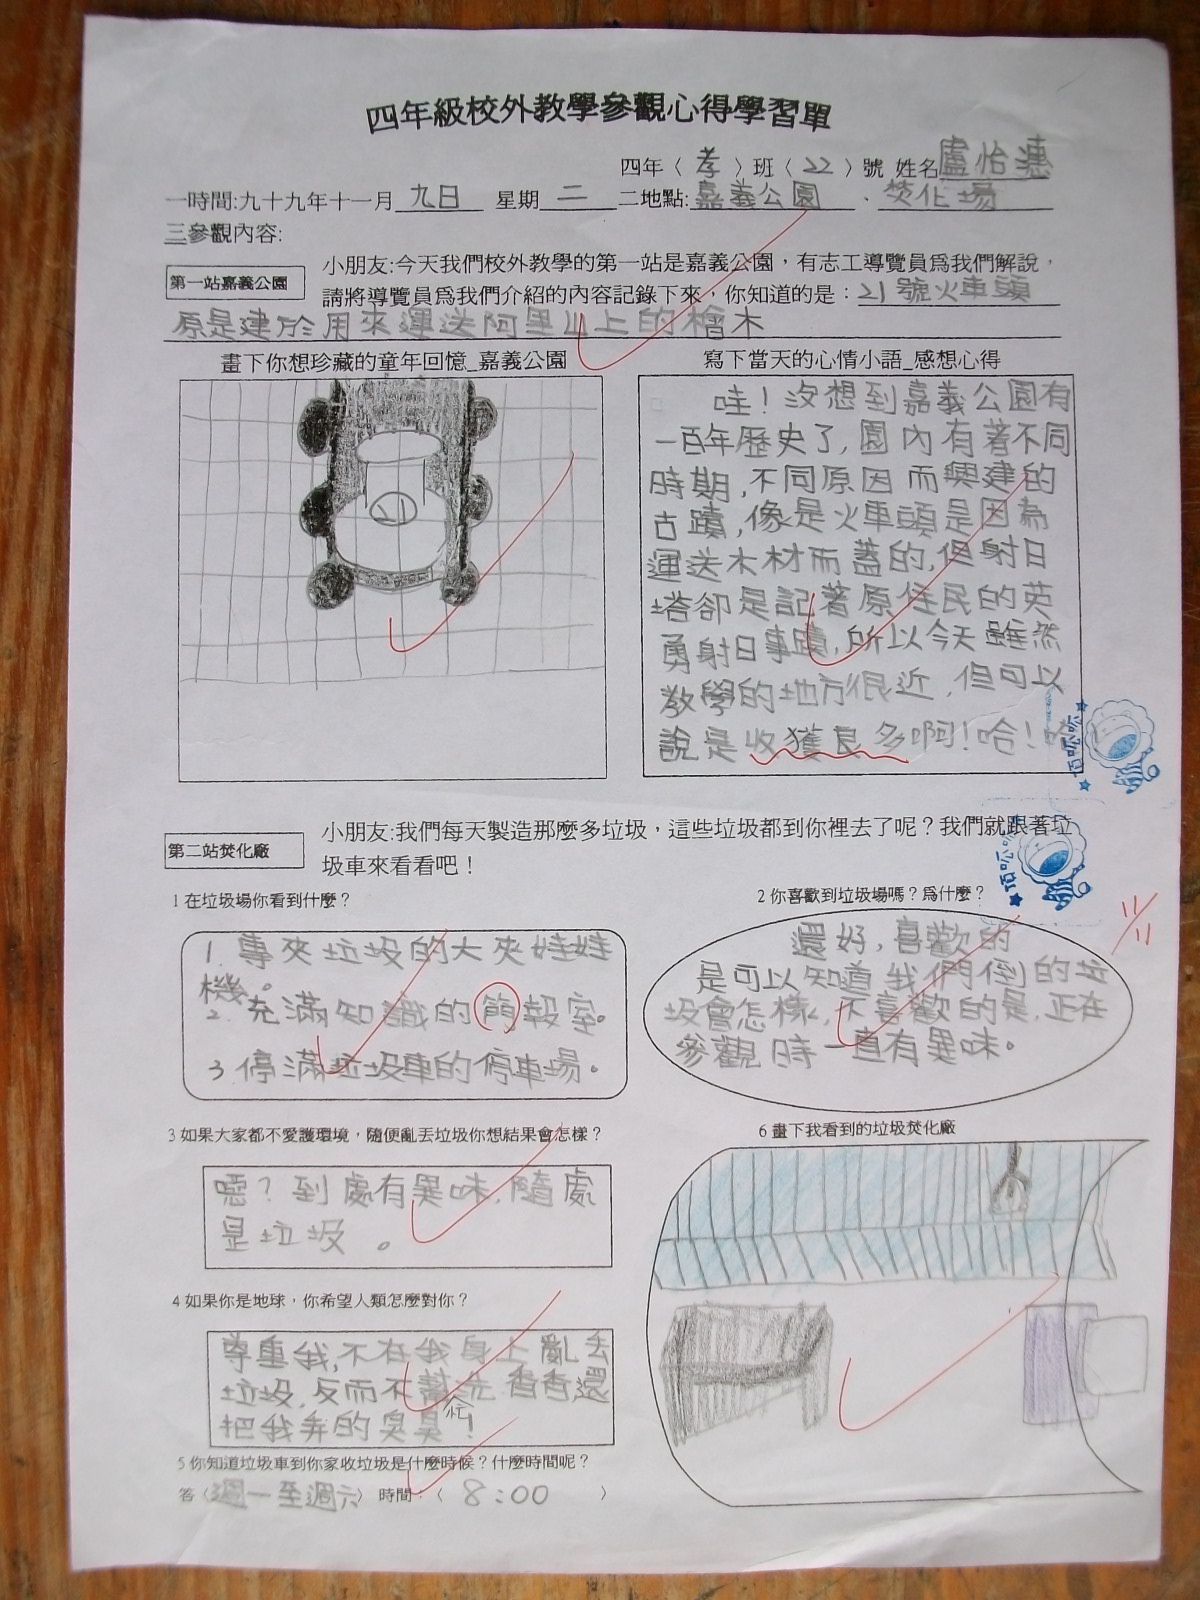 四年級校外教學參觀心得學習單
四年〈 孝 〉班〈 22 〉號 姓名盧怡
一時間:九十九年十一月 九日 星期 二 二地點:嘉義公園 、 焚化場
三參觀內容:
第一站嘉義公園
小朋友:今天我們校外教學的第一站是嘉義公園，有志工導覽員為我們解說，
請將導覽員為我們介紹的內容記錄下來，你知道的是：21號火車頭
原是建於用來運送阿里山上的檜木
畫下你想珍藏的童年回憶_嘉義公園
寫下當天的心情小語_感想心得
哇！沒想到嘉義公園有
一百年歷史了,園內有著不同
時期,不同原因而興建的
古蹟,像是火車頭是因為
運送木材而蓋的,但射日
塔卻是記著原住民的英
勇射日事蹟,所以今天雖然
教學的地方很近,但可以
說是收獲良多啊！哈！哈
第二站焚化廠
小朋友:我們每天製造那麼多垃圾，這些垃圾都到你裡去了呢？我們就跟著垃
圾車來看看吧！
1 在垃圾場你看到什麼？
1.專夾垃圾的大夾娃娃
機。
2.充滿知識的簡報室。
3 停滿垃圾車的停車場。
2 你喜歡到垃圾場嗎？為什麼？
還好,喜歡的
是可以知道,我們倒的垃
圾會怎樣,不喜歡的是,正在
參觀時一直有異味。
11/11
3 如果大家都不愛護環境，隨便亂丟垃圾你想結果會怎樣？
嗯？到處有異味,隨處
是垃圾。
4 如果你是地球，你希望人類怎麼對你？
尊重我,不在我身上亂丟
垃圾,反而不幫忙洗香香還
把我弄的臭臭！
5 你知道垃圾車到你家收垃圾是什麼時候？什麼時間呢？
答〈週一至週六〉 時間：〈 8:00 〉
6 畫下我看到的垃圾焚化廠